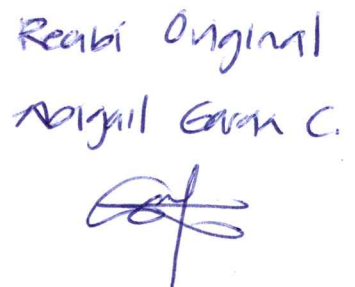 Recibi Original
Abigail Garcia C.